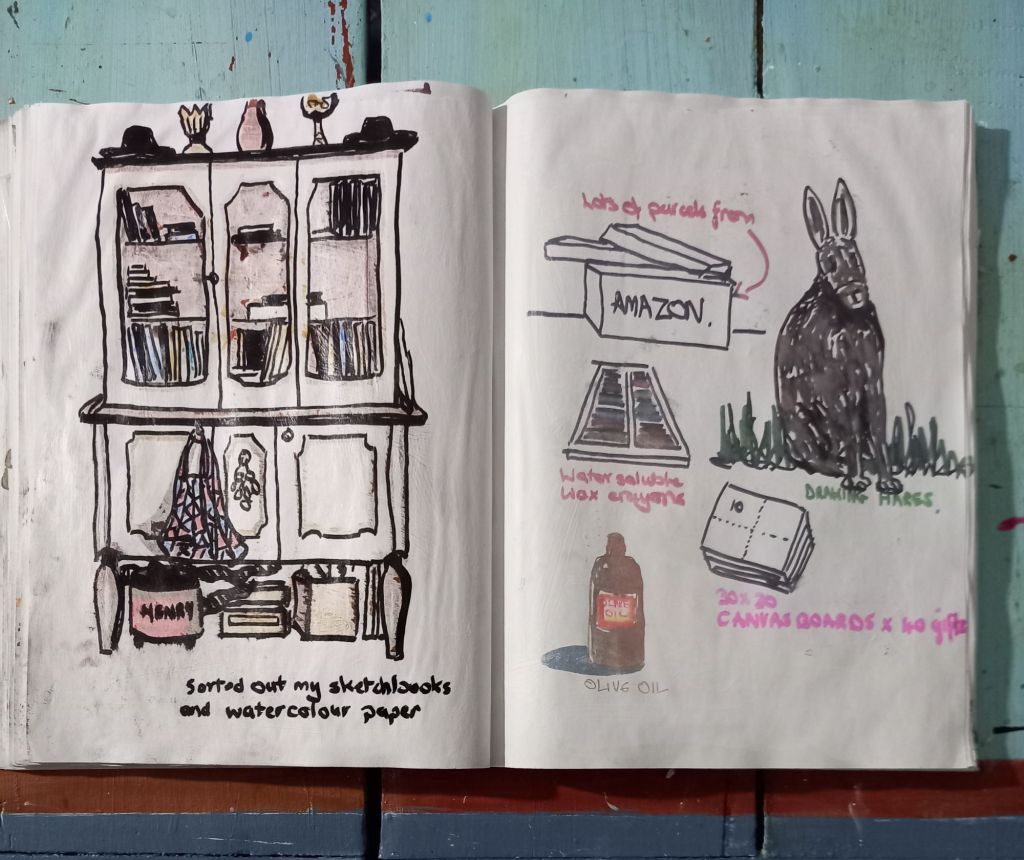 HENRY
Sorted out my sketchbooks
and watercolour paper
Lots of parcels from
AMAZON.
Water soluble
Wax crayons
DRAWING HARES.
10
30 x 30
CANVAS BOARDS x 40 gifts
OLIVE
OIL
OLIVE OIL